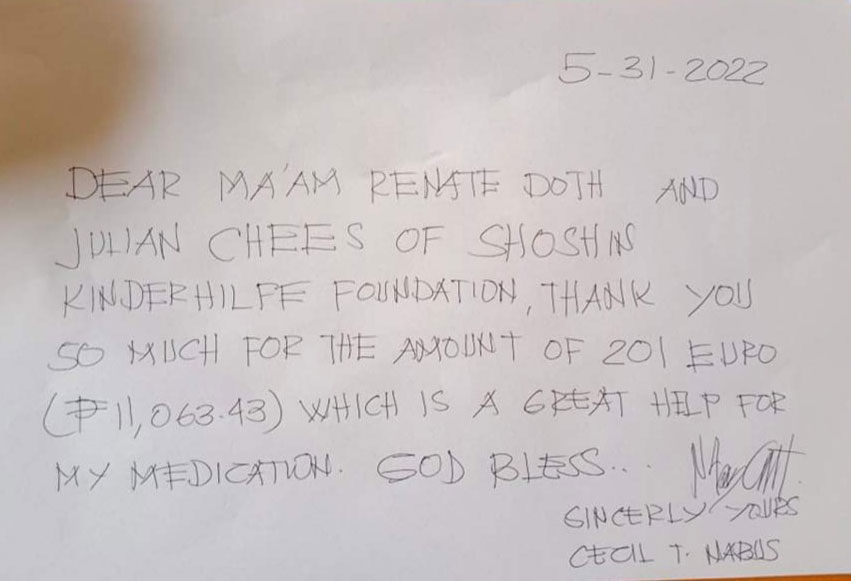 5-31-2022
DEAR MA'AM RENATE DOTH AND
JULIAN CHEES OF SHOSHIN
KINDERHILFE FOUNDATION, THANK YOU
SO MUCH FOR THE AMOUNT OF 201 EURO
(₱11,063.43) WHICH IS A GREAT HELP FOR
MY MEDICATION. GOD BLESS...
SINCERLY YOURS
CECIL T. NABUS